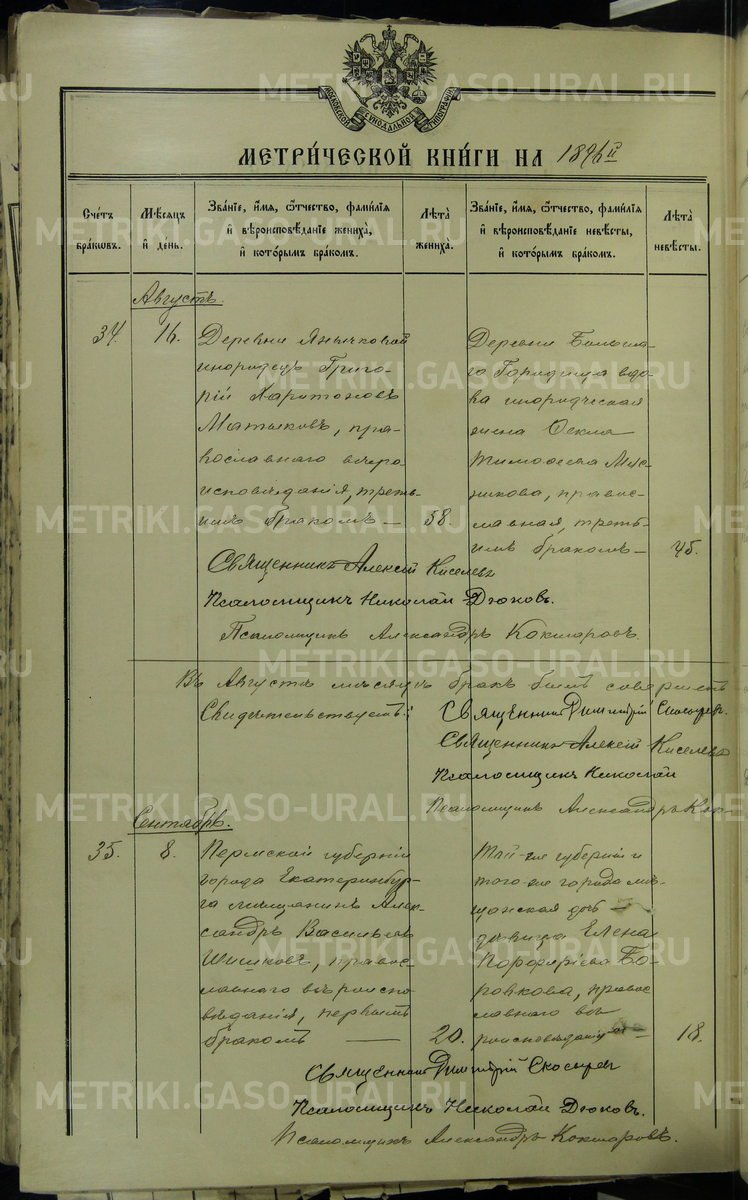 МОСКОВСКОЙ СѴНОДАЛЬНОЙ ТИПОГРАФІИ
МЕТРИ́ЧЕСКОЙ КНИ́ГИ НА 1896й
Счетъ бра́кѡвъ.
Мѣ́сяцъ и де́нь.
Зва́нїе, и́мя, ѻ҆́тчество, фами́лїя и вѣроисповѣ́данїе жениха̀, и кото́рымъ бра́комъ.
Лѣ́та жениха̀.
Зва́нїе, и́мя, ѻ҆́тчество, фами́лїя и вѣроисповѣ́данїе невѣ́сты, и кото́рымъ бра́комъ.
Лѣ́та невѣ́сты.
Августъ.
34. 16.
Деревни Янычковой
инородецъ Григо-
рій Харитоновъ
Матыковъ, пра-
вославнаго вѣро
исповѣданія, треть-
имъ бракомъ —
58.
Деревни Больша-
го Городища вдо-
ва инородческая
жена
Тимоѳеева Мяс-
никова, правос-
лавная, треть-
имъ бракомъ —
45.
Священникъ Алексій Киселевъ
Псаломщикъ Николай Дюковъ.
Псаломщикъ Александръ Кокшаровъ.
Въ Августѣ мѣсяцѣ бракъ былъ
Свидѣтельствуетъ:
Священникъ Димитрій Скосыревъ.
Священникъ Алексій Киселевъ
Псаломщикъ Николай
Псаломщикъ Александръ Кок
Сентябрь.
35. 8.
Пермской губерніи
города Екатеринбур-
га мѣщанинъ Алек-
сандръ Васильевъ
Шишковъ, правос-
лавнаго вѣроиспо
вѣданія, первымъ
бракомъ —
20.
Той-же губерніи и
того-же города мѣ-
щанская доч —
дѣвица Елена
Порфирьева Бо-
ровкова, правос
лавнаго вѣ
роисповѣданія —
18.
Священникъ Димитрій Скосырев
Псаломщикъ Николай Дюковъ.
Псаломщикъ Александръ Кокшаровъ.
METRIKI.GASO-URAL.RU